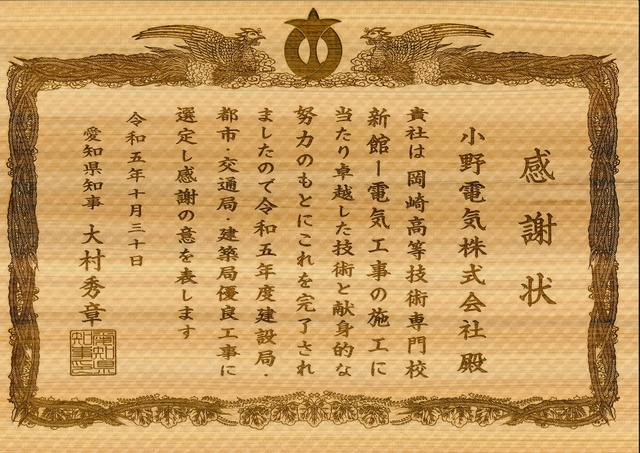 感謝状
小野電気株式会社 殿
貴社は岡崎高等技術専門校
新館Ⅰ電気工事の施工に
当たり卓越した技術と献身的な
努力のもとにこれを完了され
ましたので令和五年度建設局・
都市・交通局・建築局優良工事に
選定し感謝の意を表します
令和五年十月三十日
愛知県知事 大村秀章
愛知県
知事之印